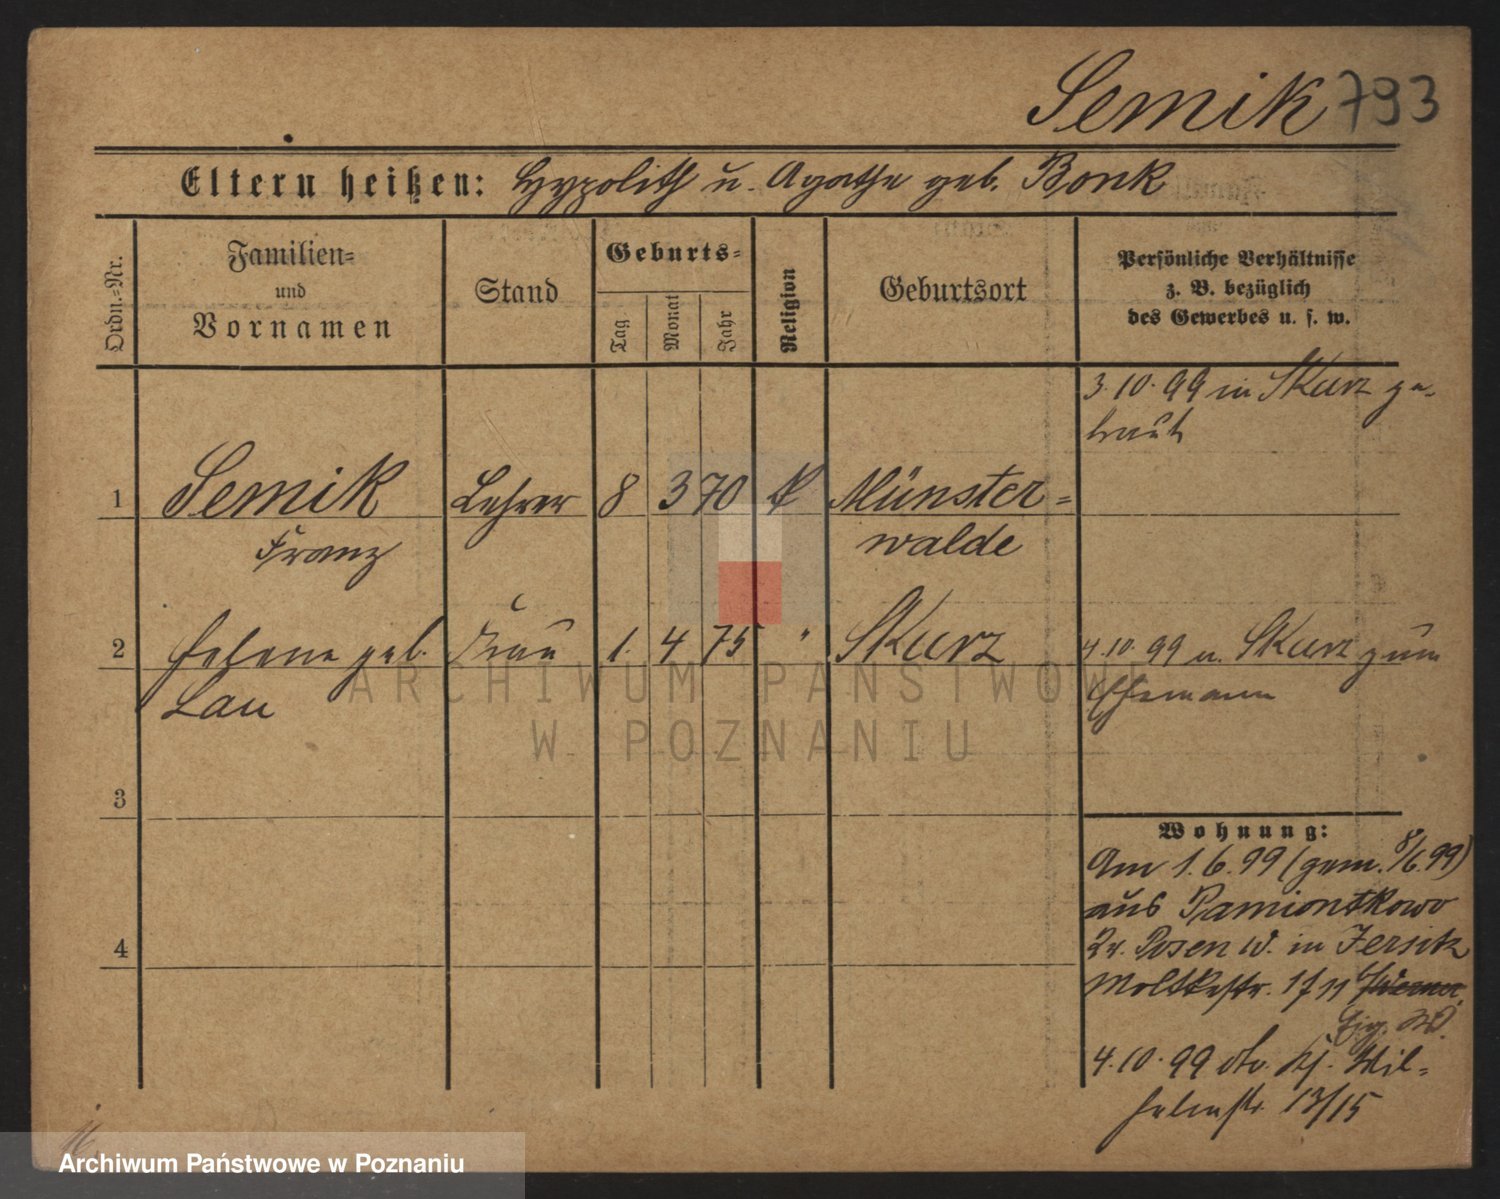 Semik 793
Eltern heißen: Hypolith u. Agathe geb. Bonk
Ordn.=Nr.
Familien=
und
Vornamen
Stand
Geburts=
Tag
Monat
Jahr
Religion
Geburtsort
Persönliche Verhältnisse
z. B. bezüglich
des Gewerbes u. s. w.
3.10.99 in Skurz ge-
traut
1 Semik Lehrer 8 3 70 Münster=
Franz walde
2 Helene geb. Frau 1. 4 75 " Skurz 4.10.99 u. Skurz zum
Lau Ehemann
3
4
Wohnung:
Am 1.6.99 (gem. 8/6.99)
aus Pamiontkowo
Kr. Posen W. in Jersitz
Moltkestr. 17 II
4.10.99 Wil=
helmstr. 13/15
ARCHIWUM PAŃSTWOWE
W POZNANIU
Archiwum Państwowe w Poznaniu